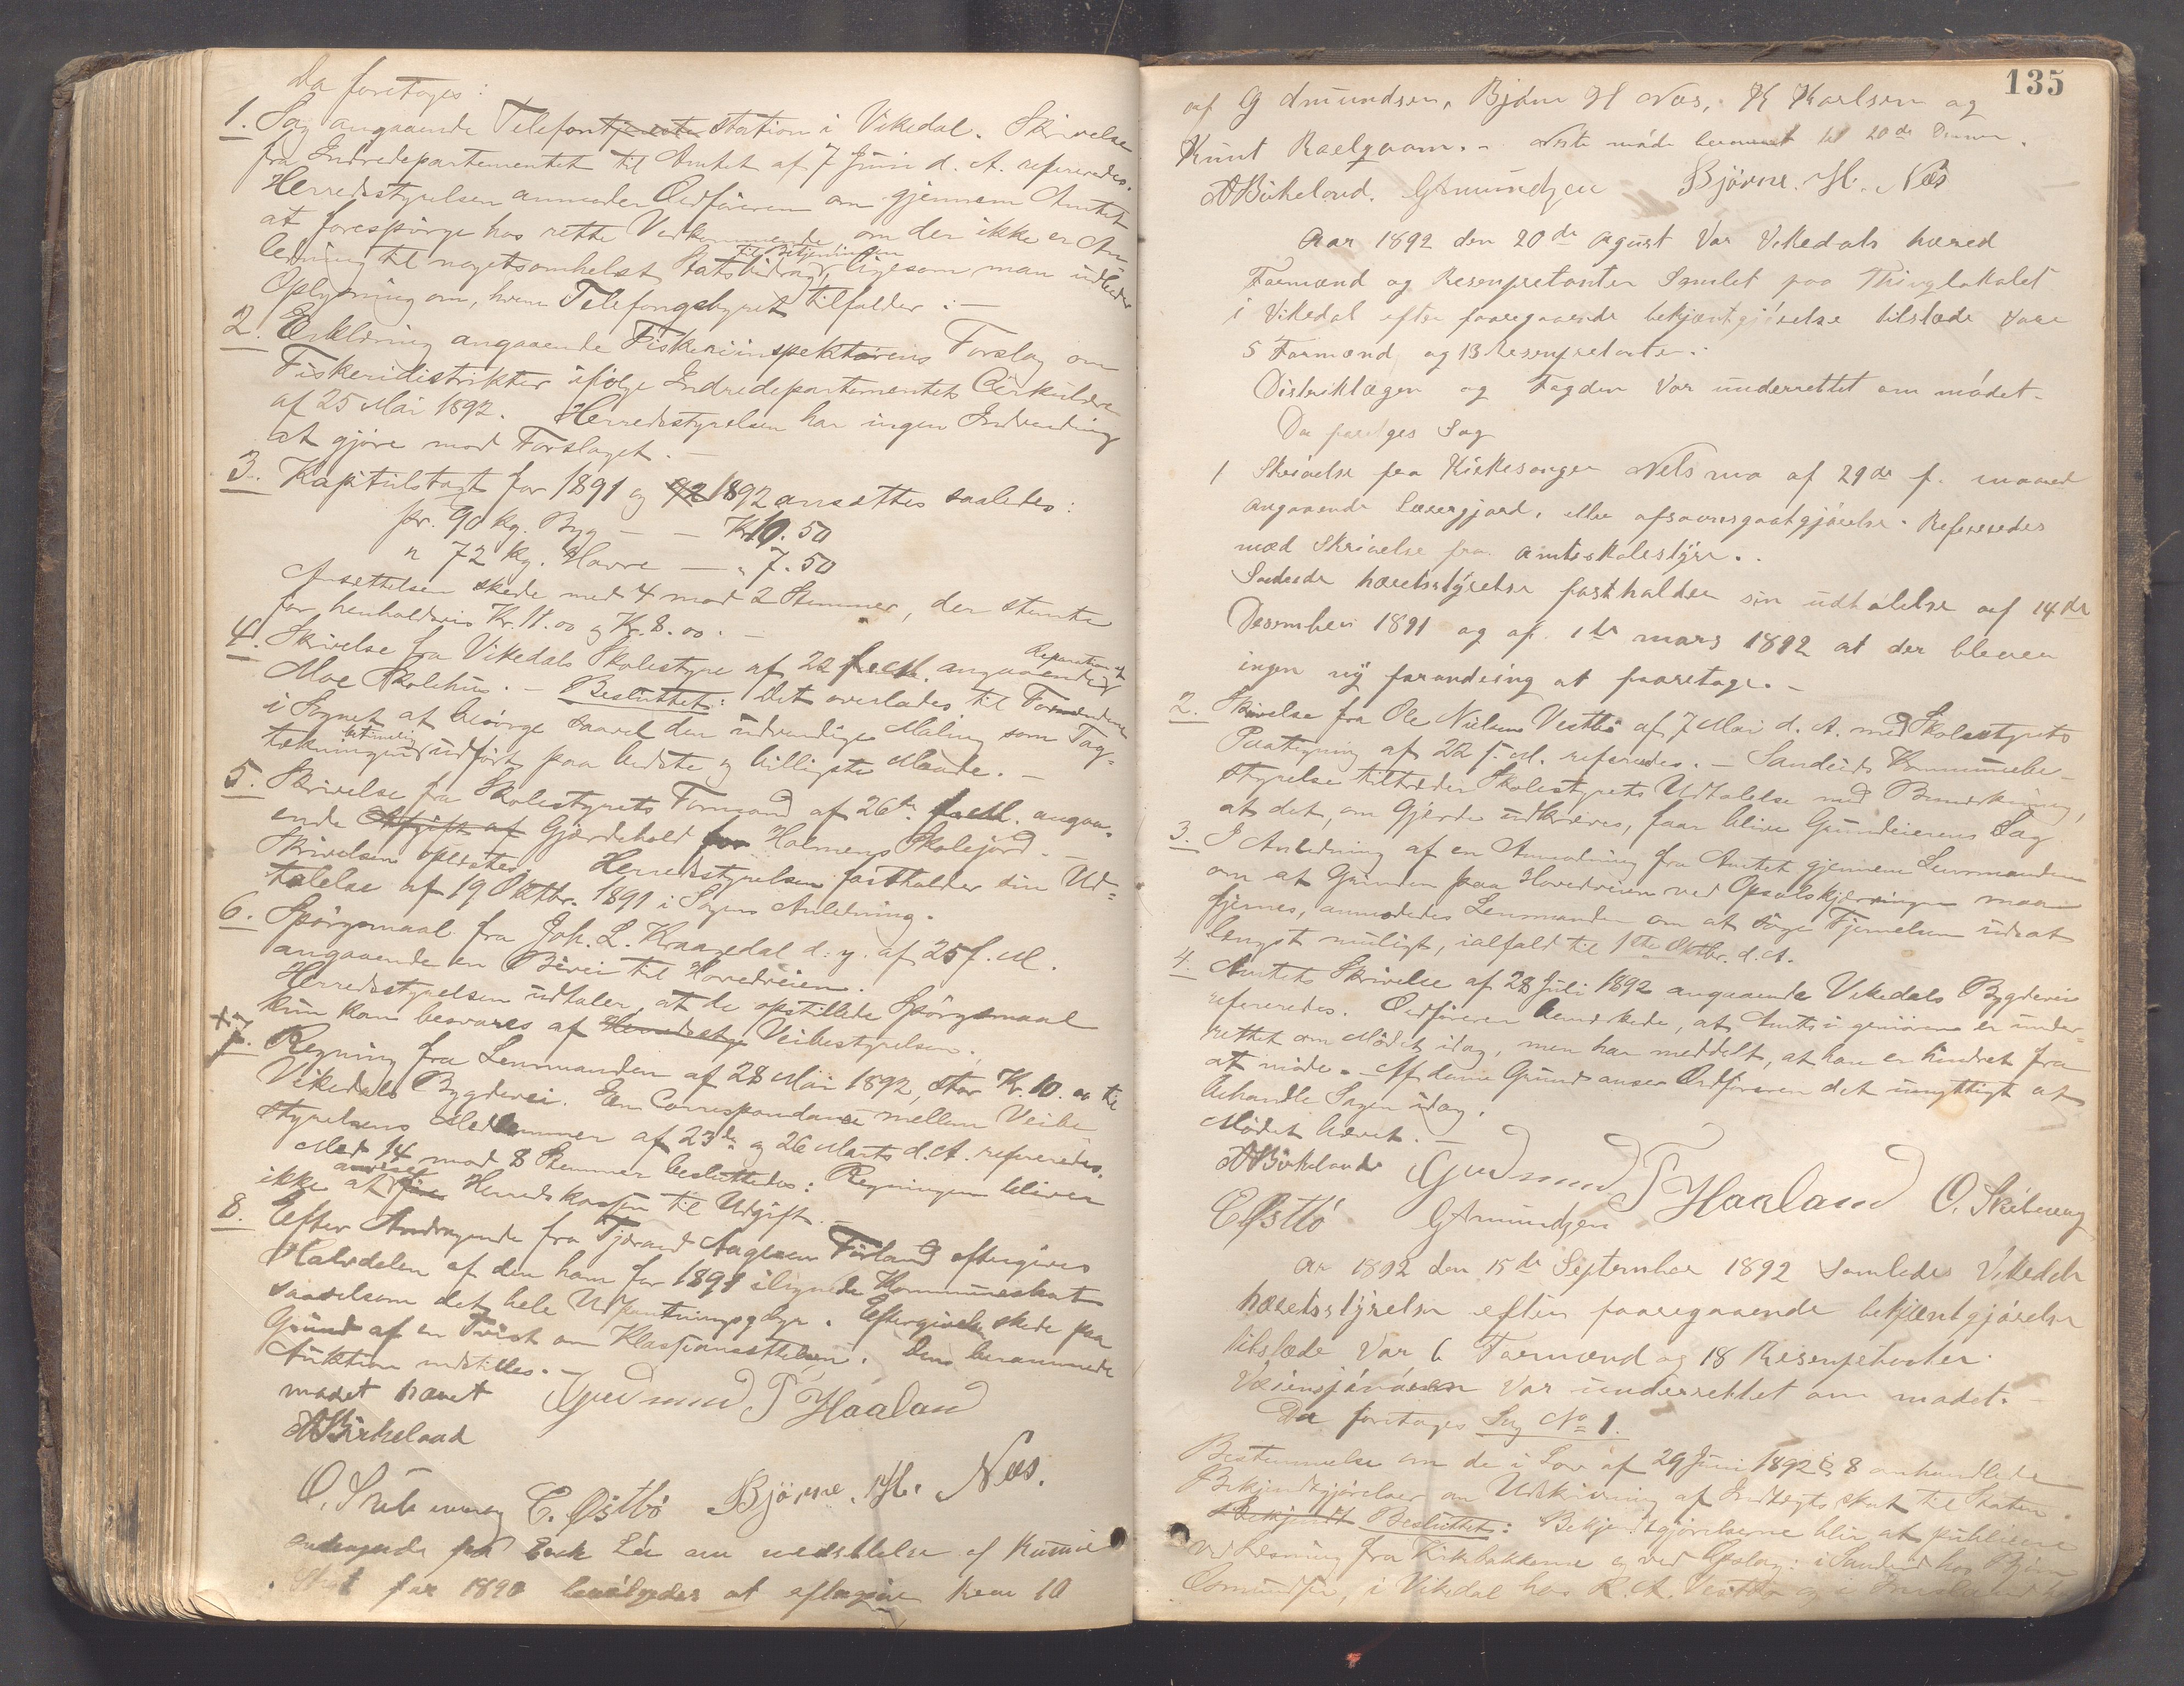 Da foretoges:
1. Sag angaaende Telefontjeneste station i Vikedal. Skrivelse
fra Indredepartementet til Amtet af 7 Juni d. A. refereredes.
Herredsstyrelsen anmoder Ordføreren om gjennem Amtet
at forespørge hos rette Vedkommende, om der ikke er An-
ledning til nogetsomhelst Statsbidrag til Betjeningen, ligesom man udbeder
Oplysning om, hvem Telefongebyret tilfalder :-
2. Erklæring angaaende Fiskeriinspektørens Forslag om
Fiskeridistrikter ifølge Indredepartementets Cirkulære
af 25 Mai 1892. Herredsstyrelsen har ingen Indvending
at gjøre mod Forslaget. -
3. Kapitulstagt for 1891 og 92 1892 ansættes saaledes:
pr. 90 kg. Byg - - Kr. 10.50
" 72 kg. Havre - " 7.50
Ansættelsen skede med 4 mod 2 Stemmer, der stemte
for henholdsvis Kr. 11.00 og Kr. 8.00. -
4. Skrivelse fra Vikedals Skolestyre af 22 f. M. angaaende Reparation af
Moe Skolehus. - Besluttet: Det overlades til Formændene
i Sognet at besørge saavel den udvendige Maling som Tag-
tækningen betimelig udført paa bedste og billigste Maade. -
5. Skrivelse fra Skolestyrets Formand af 26de f. M. angaa-
ende Afgift af Gjærdehold for Holmens Skolejord. -
Skrivelsen oplæstes. Herredsstyrelsen fastholder sin Ud-
talelse af 19 Oktbr. 1891 i Sagens Anledning.
6. Spørgsmaal fra Joh. L. Kraagedal d. y. af 25 f. M.
angaaende en Bivei til Hovedveien.
Herredsstyrelsen udtaler, at de opstillede Spørgsmaal
kun kan besvares af Herredssty Veibestyrelsen.
7. Regning fra Lensmanden af 28 Mai 1892, stor Kr. 10.00 til
Vikedals Bygdevei. En Correspondance mellem Veibe
styrelsens Medlemmer af 23de og 26 Marts d. A. refereredes.
Med 14 mod 8 Stemmer besluttedes: Regningen bliver
ikke at anvise Herredskassen til Udgift. -
8. Efter Andragende fra Tjerand Aagesen Førland eftergives
Halvdelen af den ham for 1891 ilignede Kommuneskat
saavelsom det hele Udpantningsgebyr. Eftergivelse skede paa
Grund af en Tvist om Klasseansættelsen. Den berammede
Auktion indstilles. -
mødet hævet Gudmund T Haaland
A Birkeland
O. C. Østbø Bjørne. H. Næs.
andragende fra om nedsættelse af Kumune
Skat for 1890 at eftergive Kron 10
135
af G Amundsen, Bjørn H Næs, K Karlsen og
Knut . - Neste møde berammet til 20de
A Birkeland. G Amundsen Bjørne. H. Næs
Aar 1892 den 20de Agust Var Vikedals hæred
Formænd og Resenpretanter Samlet paa Thinglokalet
i Vikedal efter foregaaende bekjæntgjørelse tilstæde Vare
5 Formænd og 13 Resenpretanter.
Distriktlægen og Fogden Var underrettet om mødet.
Da foretoges Sag
1 Skrivelse fra Kirkesanger af 29de f. maaned
angaaende Lærergjord, eller afsavnsgaatgjørelse. Refereredes
med Skrivelse fra amtsskolestyre.
hæredsstyrelse fastholder sin udtalelse af 14de
Desember 1891 og af 1ste mars 1892 at der bliver
ingen ny forandring at foretage. -
2. Skrivelse fra Ole Nielsen Vestbø af 7 Mai d. A. med Skolestyrets
Paategning af 22 f. M. refereredes. - Sandeids Kommunebe-
styrelse tiltræder Skolestyrets Udtalelse med Bemærkning,
at det, om Gjerde udkræves, faar blive Grundeierens Sag
3. I Anledning af en Anmodning fra Amtet gjennem Lensmanden
om at Grinden paa Hovedveien ved Opsalskjærringen maa
fjernes, anmodedes Lensmanden om at søge Fjernelsen udsat
længst muligt, ialfald til 1ste Oktbr. d. A.
4. Amtets Skrivelse af 28 Juli 1892 angaaende Vikedals Bygdevei
refereredes. Ordføreren bemærkede, at Amtsingeniøren er under-
rettet om Mødet idag, men har meddelt, at han er hindret fra
at møde. - Af denne Grund anser Ordføreren det unyttigt at
behandle Sagen idag.
Mødet hævet. -
A Birkeland Gudmund T Haaland O.
C Østbø G Amundsen
Aar 1892 den 15de September 1892 Samledes Vikedals
hæredsstyrelse efter foregaaende bekjæntgjørelse
tilstæde Var 6 Formænd og 18 Resenpretanter.
Var underrettet om mødet.
Da foretoges Sag No 1.
Bestemmelse om de i Lov af 29 Juni 1892 § 8 omhandlede
Bekjendtgjørelser om Udskrivning af Indtægtsskat til Staten.
Bekjendt Besluttet: Bekjendtgjørelserne blir at publicere
ved Læsning fra Kirkebakkerne og ved Opslag: i Sandeid hos Bjørn
Osmundsen, i Vikedal hos R. A. Vestbø og i